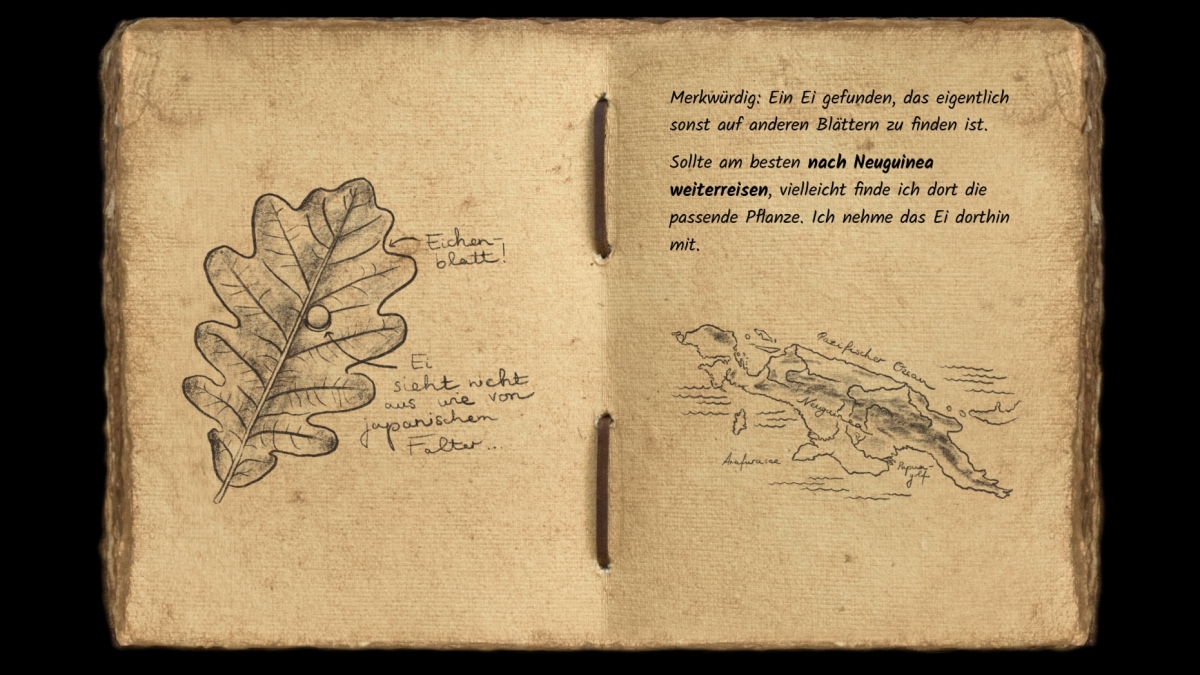 Eichen-
blatt!
Ei
sieht nicht
aus wie von
japanischem
Falter...
Merkwürdig: Ein Ei gefunden, das eigentlich
sonst auf anderen Blättern zu finden ist.
Sollte am besten nach Neuguinea
weiterreisen, vielleicht finde ich dort die
passende Pflanze. Ich nehme das Ei dorthin
mit.
Pazifischer Ozean
Neuguinea
Arafurasee
Papua-
golf